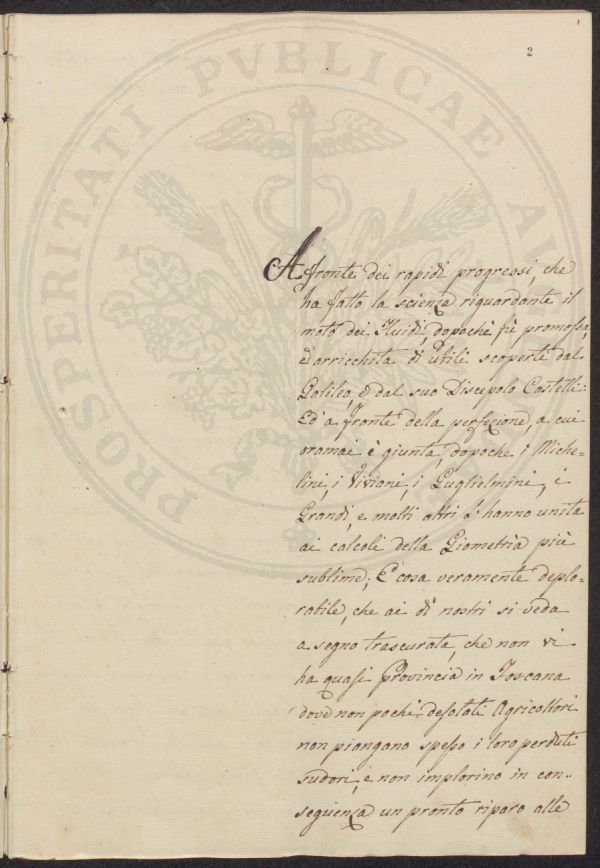 2
A fronte dei rapidi progressi, che
ha fatto la scienza riguardante il
moto dei Fluidi, dopoche fù promossa,
ed arricchita di utili scoperte dal
Galileo, e dal suo Discepolo Castelli:
Ed a fronte della perfezione, a cui
oramai è giunta, dopoche i Miche-
lini, i Viviani, i Guglielmini, i
Grandi, e molti altri l'hanno unita
ai calcoli della Giometria più
sublime; È cosa veramente deplo-
rabile, che ai dì nostri si veda
a segno trascurata, che non vi
ha quasi Provincia in Toscana
dove non pochi desolati Agricoltori
non piangano spesso i loro perduti
sudori, e non implorino in con-
seguenza un pronto riparo alle
PROSPERITATI PVBLICAE